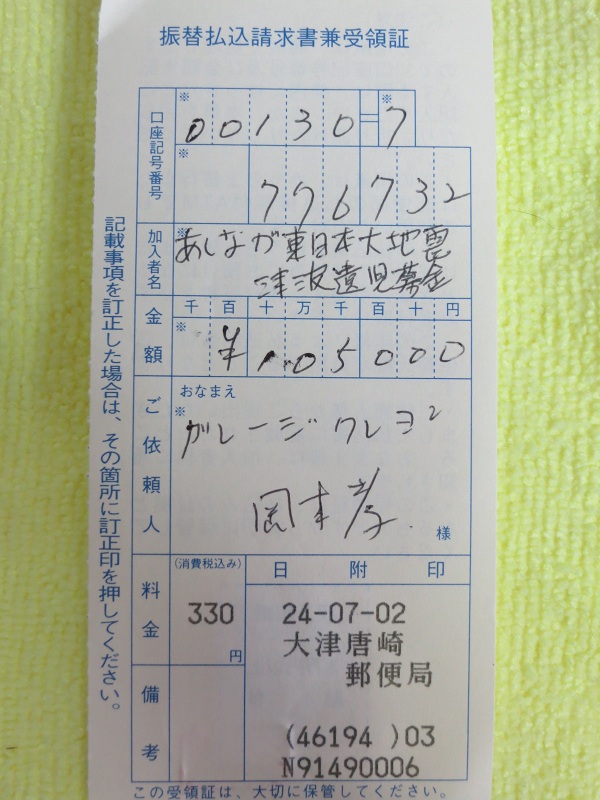 振替払込請求書兼受領証
口座記号番号
※ 00130=※7
※ 776732
加入者名
※ あしなが東日本大地震
津波遺児募金
金額
千百十万千百十円
※ ¥105000
ご依頼人
おなまえ
※ ガレージクレヨン
岡本孝 様
料金
(消費税込み)
330
円
備考
日附印
24-07-02
大津唐崎
郵便局
(46194 )03
N91490006
記載事項を訂正した場合は、その箇所に訂正印を押してください。
この受領証は、大切に保管してください。